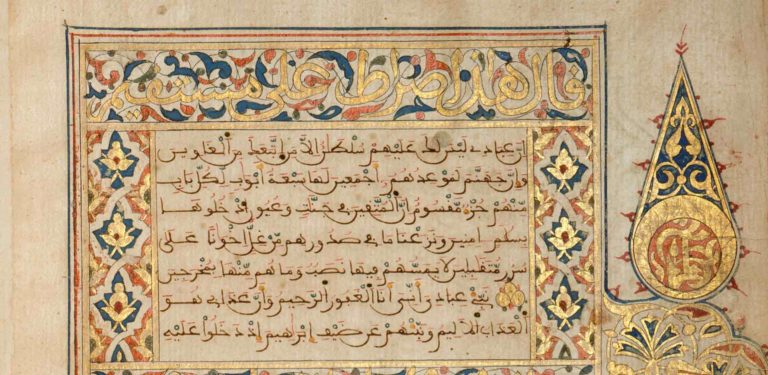 قال هذا صراط علي مستقيم
ان عبادي ليس لك عليهم سلطن الا من اتبعك من الغاوين
وان جهنم لموعدهم اجمعين لها سبعة ابوب لكل باب
منهم جزء مقسوم ان المتقين في جنت وعيون ادخلوها
بسلم امنين ونزعنا ما في صدورهم من غل اخونا على
سرر متقبلين لا يمسهم فيها نصب وما هم منها بمخرجين
نبئ عبادي اني انا الغفور الرحيم وان عذابي هو
العذاب الاليم ونبئهم عن ضيف ابرهيم اذ دخلوا عليه